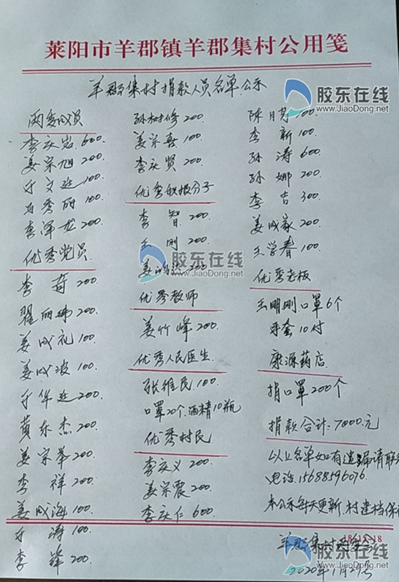 莱阳市羊郡镇羊郡集村公用笺
羊郡集村捐款人员名单公示
两委成员
李庆岩 600.
姜宗旭 200.
于文延 100.
李泽龙 200.
优秀党员
李奇 200.
翟丽娜 200.
姜成礼 100.
姜成波 100.
于华延 200.
黄东杰 200.
姜宗峯 200.
李祥 200.
姜成海 100.
于涛 100.
李锋 200.
孙树峰 200.
姜宗喜 100.
李庆贤 200.
优秀积极分子
李智 200.
王刚 200.
200
优秀教师
姜竹峰 200.
优秀人民医生
张维民 100
口罩20个.酒精10瓶
优秀村民
李庆义 200.
姜宗震 200.
李庆仁 600.
100
李新 100.
孙涛 600.
孙娜 200
李吉 300
姜成家 200.
王学春 100.
优秀老板
王明刚口罩6个
手套10付
康源药店
捐口罩200个
捐款合计: 7000.元
以上名单如有遗漏请联系
电话: 15688596076.
本公示每天更新.村建档保
2020年1月29日
胶东在线
www.JiaoDong.net
胶东在线
www.JiaoDong.net
胶东在线
www.JiaoDong.net